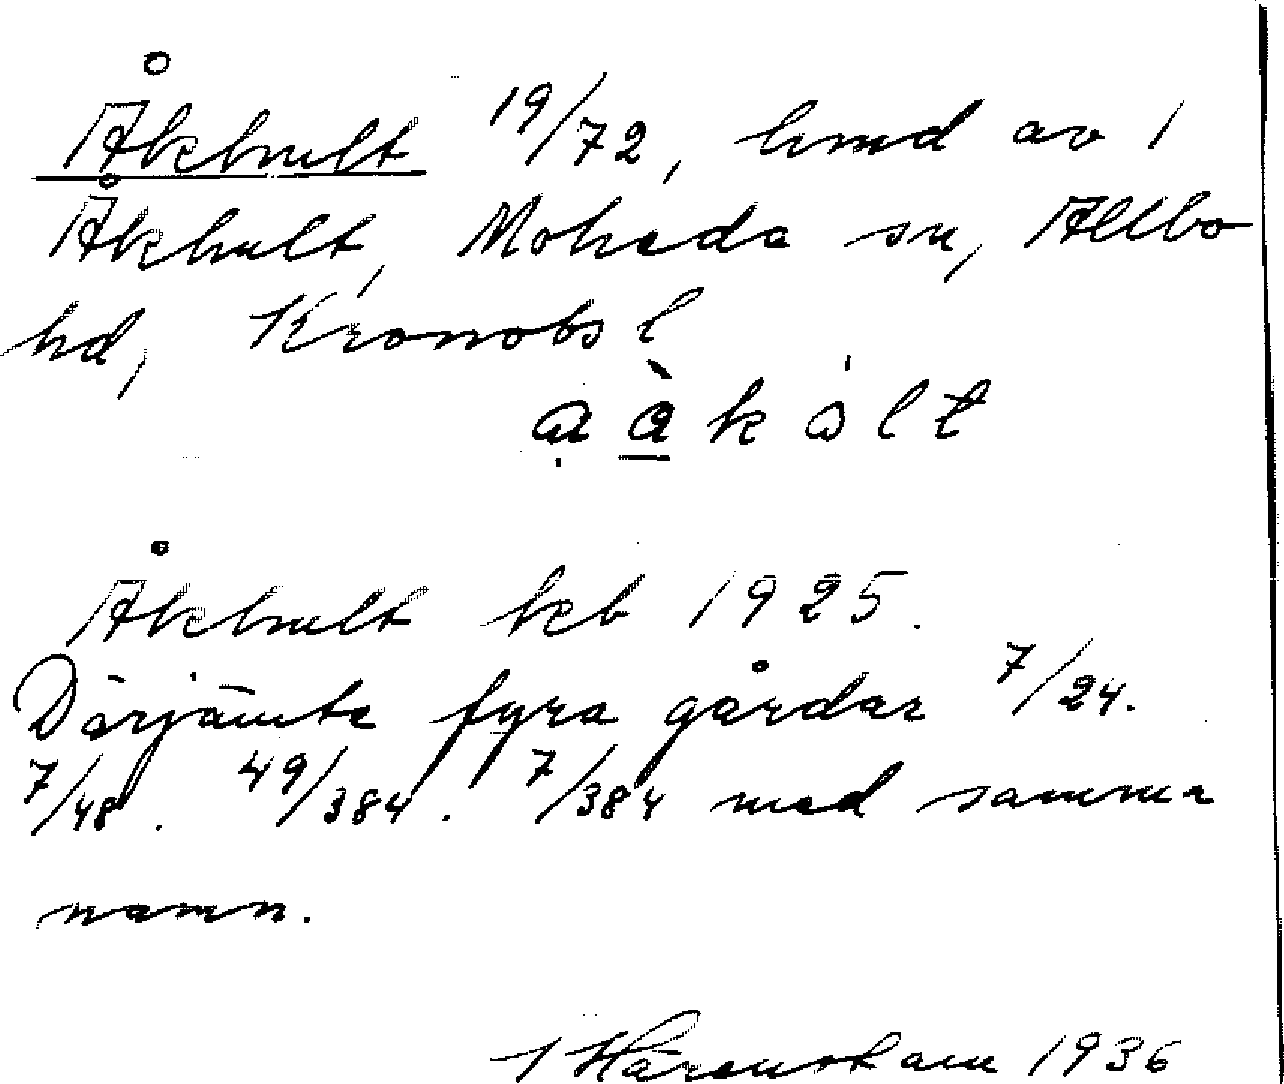 Åkhult 19/72, hmd av 1
Åkhult, Moheda sn, Allbo
hd, Kronobs l
a à k ò l t
Åkhult kb 1925.
Därjämte fyra gårdar 7/24.
7/48. 49/384. 7/384 med samma
namn.
1936